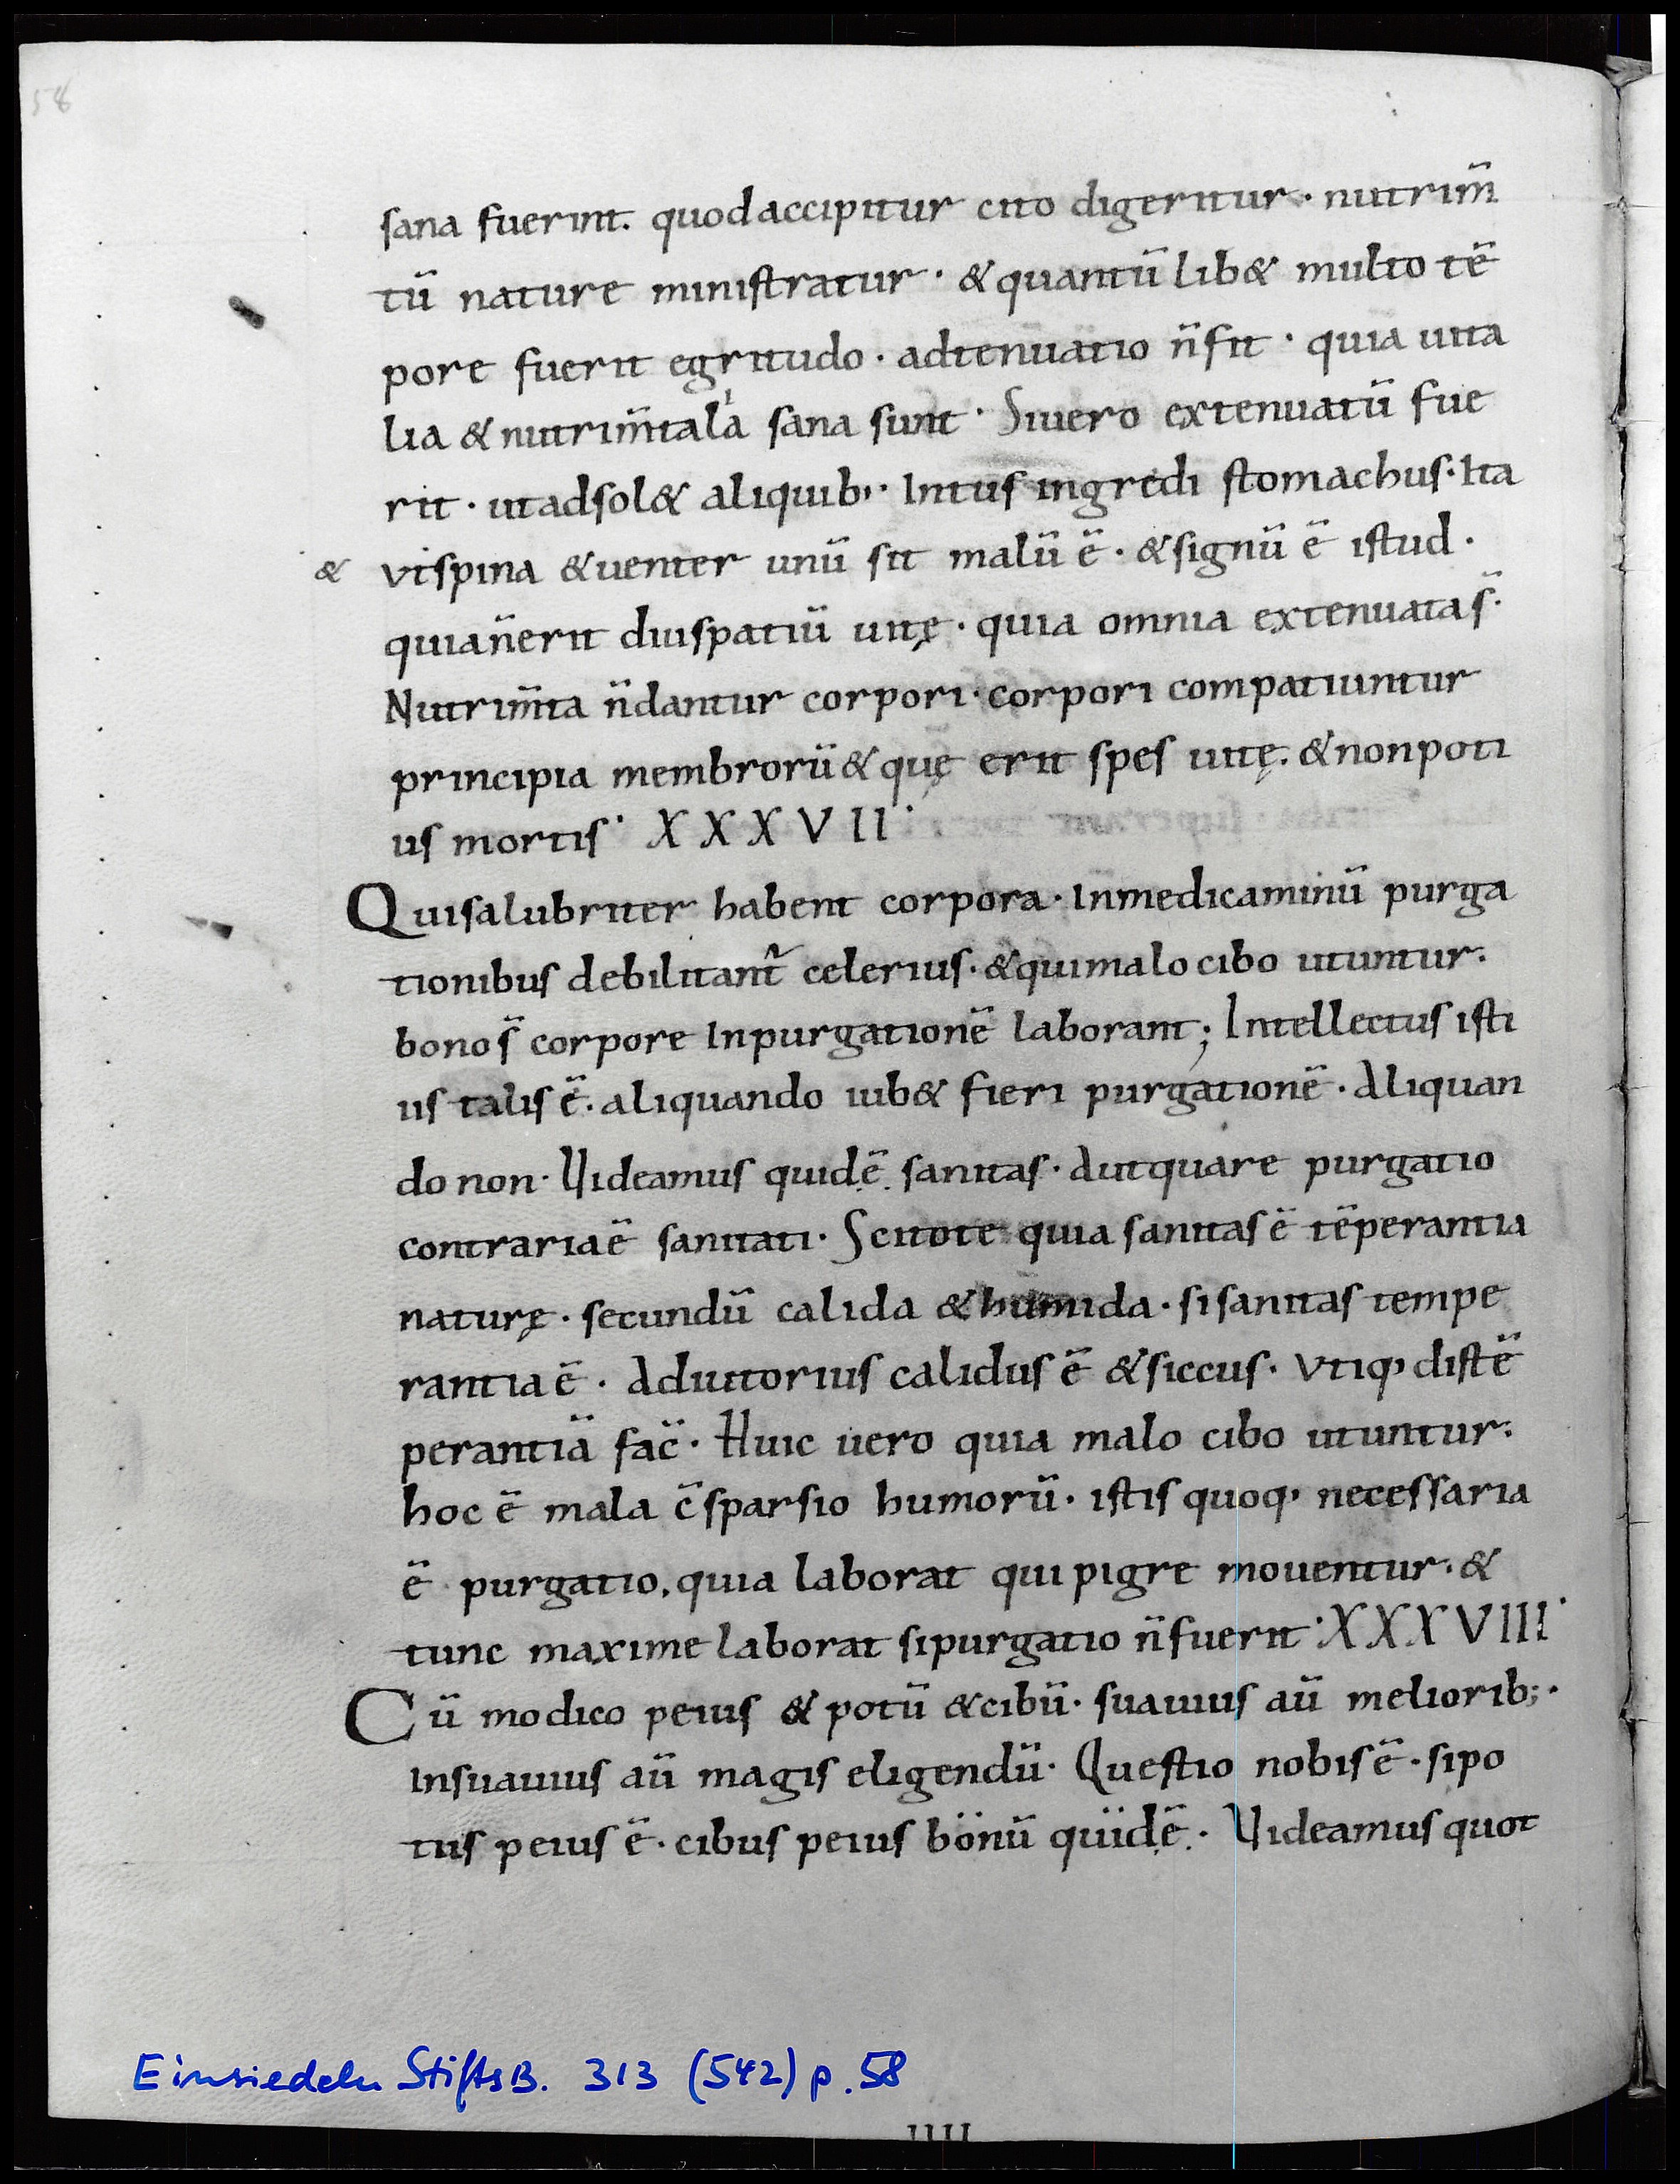 58
sana fuerint. quod accipitur cito digeritur · nutrim̄
tū nature ministratur · & quantū lib& multo tē
pore fuerit egritudo · adtenuatio n̄ fit · quia uita
lia & nutrim̄tala sana sunt · Si uero extenuatū fue
rit · ut adsol& aliquib; · Intus ingredi stomachus · Ita
& ut spina & uenter unū sit malū ē · & signū ē istud ·
quia n̄ erit diu spatiū uitę · quia omnia extenuata s̄ ·
Nutrim̄ta n̄ dantur corpori · corpori compatiuntur
principia membrorū & quę erit spes uitę · & non poti
us mortis · XXXVII ·
Qui salubriter habent corpora · In medicaminū purga
tionibus debilitant̃ celerius · & qui malo cibo utuntur ·
bono s̄ corpore In purgationē laborant; Intellectus isti
us talis ē · aliquando iub& fieri purgationē · Aliquan
do non · Uideamus quid ē sanitas · Aut quare purgatio
contraria ē sanitati · Scitote quia sanitas ē tēperantia
naturę · secundū calida & humida · si sanitas tempe
rantia ē · Adiutorius calidus ē & siccus · Utiq; distē
perantiā fac̄ · Huic uero quia malo cibo utuntur ·
hoc ē mala c̄sparsio humorū · istis quoq; necessaria
ē purgatio, quia laborat qui pigre mouentur · &
tunc maxime laborat si purgatio n̄ fuerit · XXXVIII ·
Cū modico peius & potū & cibū · suauius aū meliorib; ·
Insuauius aū magis eligendū · Questio nobis ē · si po
tus peius ē · cibus peius bonū quid ē · Uideamus quot
Einsiedeln StiftsB. 313 (542) p. 58
IIII